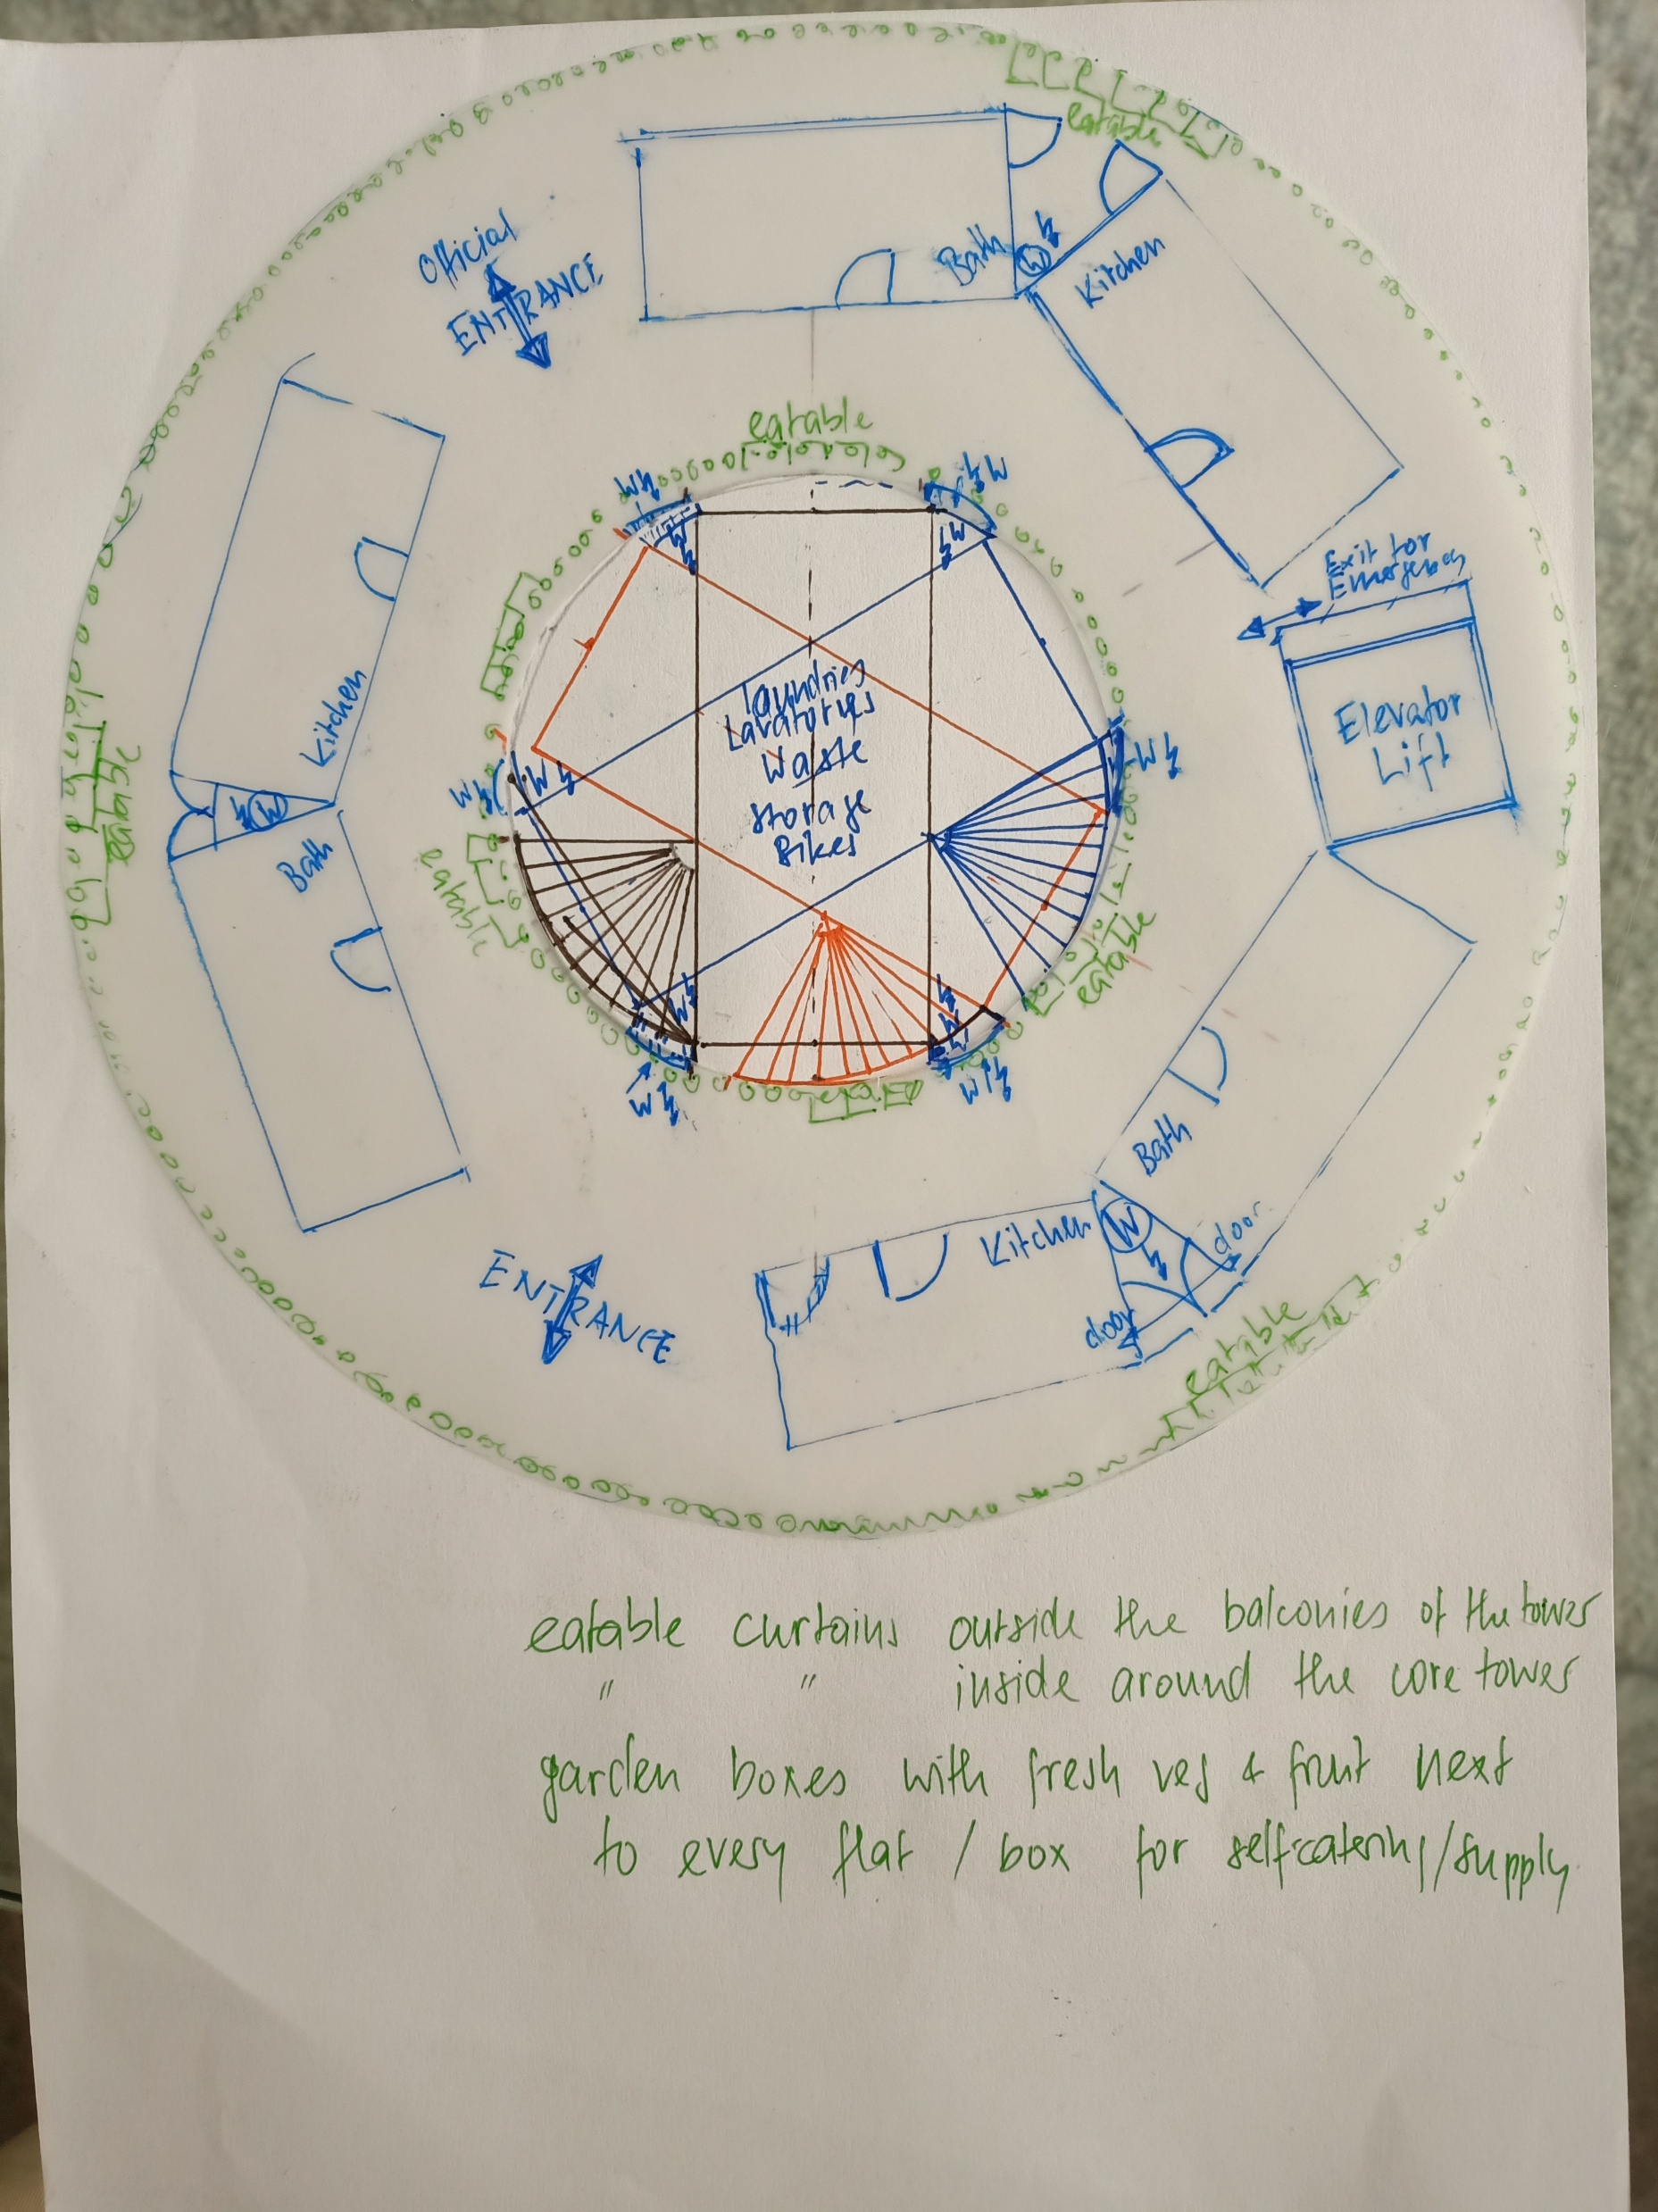 eatable
Official
ENTRANCE
Bath
W
Kitchen
eatable
W
W
W
W
Exit for
Emergency
Elevator
Lift
laundries
Lavatories
Waste
Storage
Bikes
Kitchen
W
Bath
eatable
W
W
W
eatable
eatable
W
W
W
W
Bath
Kitchen
W
door
door
ENTRANCE
eatable
eatable curtains outside the balconies of the tower
" " inside around the core tower
garden boxes with fresh veg & fruit next
to every flat / box for selfcatering/supply